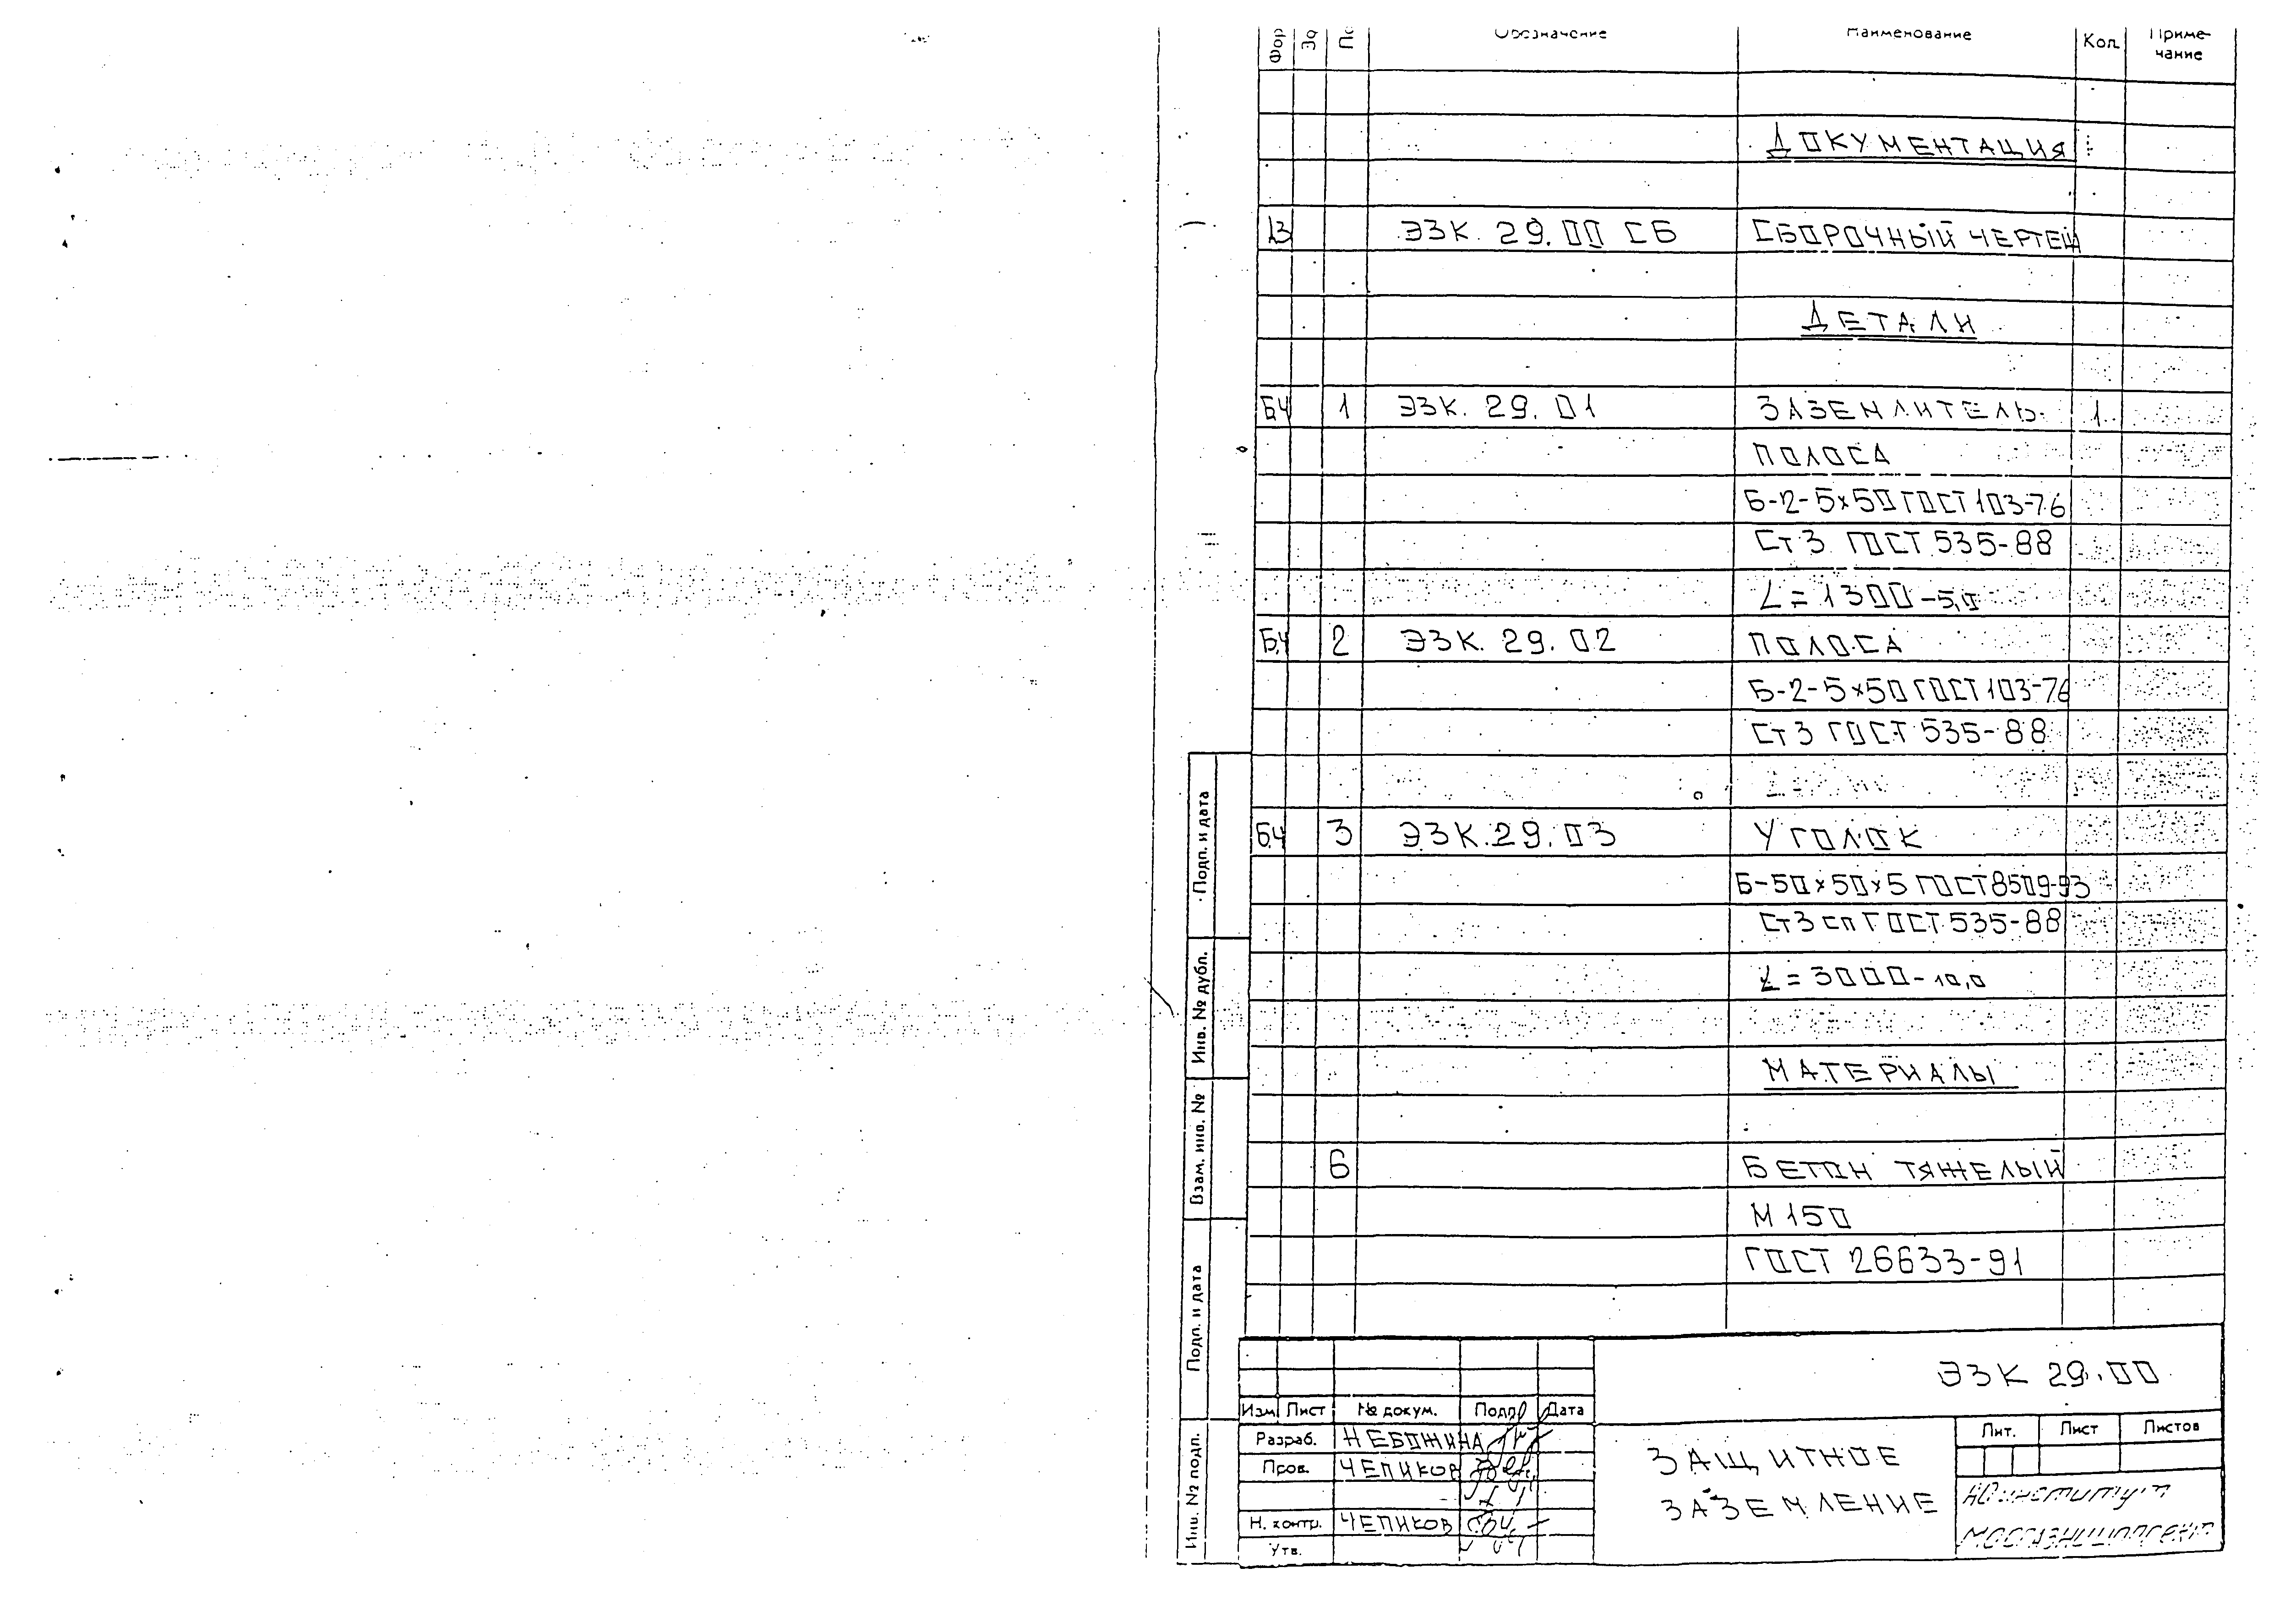 Обозначение Наименование Кол. Приме-
чание
ДОКУМЕНТАЦИЯ
А3 ЭЗК. 29. 00 СБ СБОРОЧНЫЙ ЧЕРТЕЖ
ДЕТАЛИ
БЧ 1 ЭЗК. 29. 01 ЗАЗЕМЛИТЕЛЬ 1
ПОЛОСА
Б-2-5×50 ГОСТ 103-76
Ст 3 ГОСТ 535-88
L = 1300 -5,0
БЧ 2 ЭЗК. 29. 02 ПОЛОСА
Б-2-5×50 ГОСТ 103-76
Ст 3 ГОСТ 535-88
БЧ 3 ЭЗК. 29. 03 УГОЛОК
Б-50×50×5 ГОСТ 8509-93
Ст 3 сп ГОСТ 535-88
L = 3000 - 10,0
МАТЕРИАЛЫ
6 БЕТОН ТЯЖЕЛЫЙ
М 150
ГОСТ 26633-91
Подп. и дата
Инв. № дубл.
Взам. инв. №
Подп. и дата
Инв. № подл.
ЭЗК 29.00
Изм Лист № докум. Подп. Дата
Разраб. НЕБОЖИНА
Пров. ЧЕПИКОВ
Н. контр. ЧЕПИКОВ
Утв.
ЗАЩИТНОЕ
ЗАЗЕМЛЕНИЕ
Лит. Лист Листов